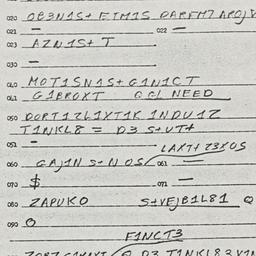 020 OB3N1S+ ETM1S DARFM7 APOJV
021 — 022 —
023 AZN1S+ T
030 —
040 MOT1SN1S+ G1N1CT
041 G1BROXT OCL NEED
050 DORT1ZL1XT1K 1NDV1Z
T1NKL8 = D3 S+UT+
051 — LAXT+ Z3XOS
060 GAJ1N S+N OS 061 —
070 $ 071 —
080 ZAPUKO S+VEJB1L81 Q
090 O
F1NCT3